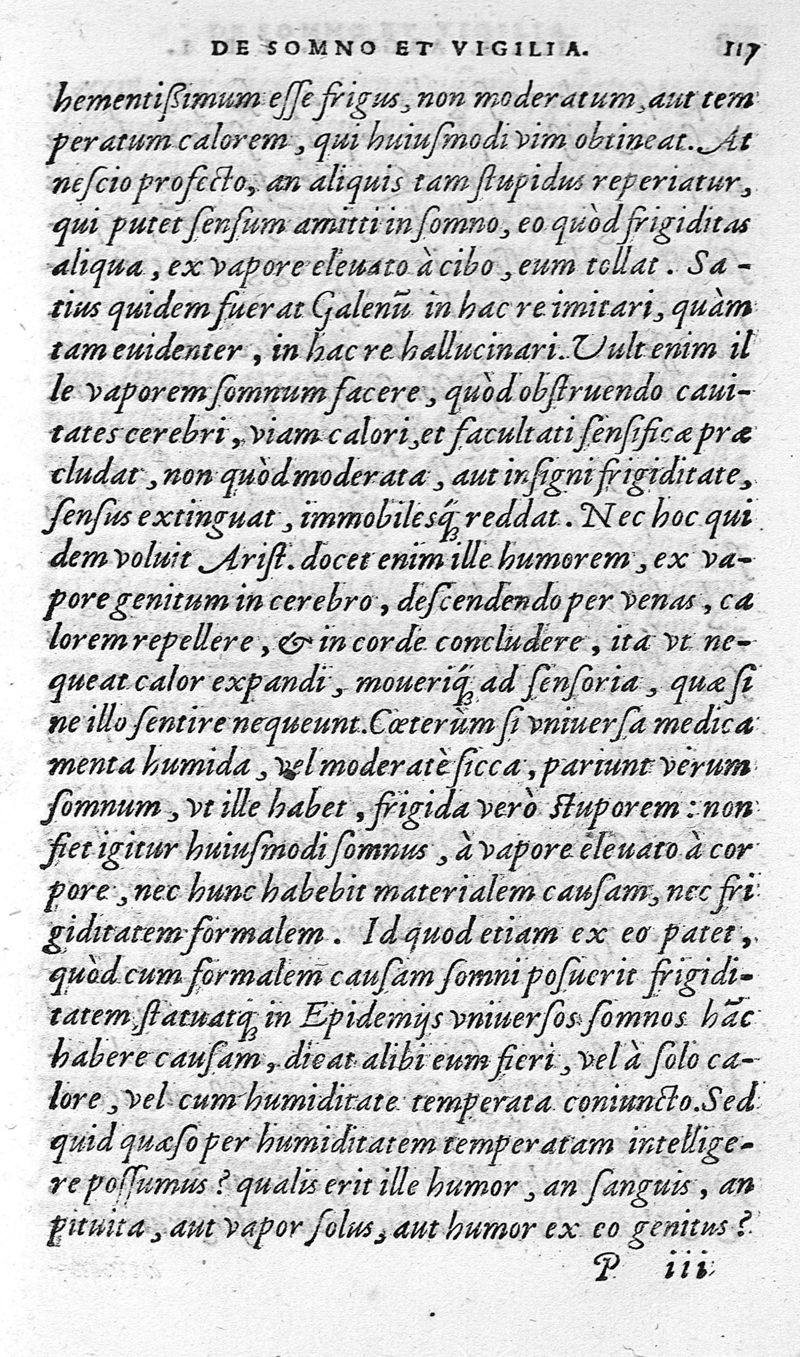 DE SOMNO ET VIGILIA. 117
hementißimum eſſe frigus, non moderatum, aut tem
peratum calorem, qui huiuſmodi vim obtineat. At
neſcio profecto, an aliquis tam ſtupidus reperiatur,
qui putet ſenſum amitti in ſomno, eo quòd frigiditas
aliqua, ex vapore eleuato à cibo, eum tollat. Sa-
tius quidem fuerat Galenū in hac re imitari, quàm
tam euidenter, in hac re hallucinari. Vult enim il
le vaporem ſomnum facere, quòd obſtruendo caui-
tates cerebri, viam calori, et facultati ſenſificæ præ
cludat, non quòd moderata, aut inſigni frigiditate,
ſenſus extinguat, immobilesq́; reddat. Nec hoc qui
dem voluit Ariſt. docet enim ille humorem, ex va-
pore genitum in cerebro, deſcendendo per venas, ca
lorem repellere, & in corde concludere, ita vt ne-
queat calor expandi, moueriq́; ad ſenſoria, quæ ſi
ne illo ſentire nequeunt. Cœterùm ſi vniuerſa medica
menta humida, vel moderatè ſicca, pariunt verum
ſomnum, vt ille habet, frigida verò ſtuporem: non
fiet igitur huiuſmodi ſomnus, à vapore eleuato à cor
pore, nec hunc habebit materialem cauſam, nec fri
giditatem formalem. Id quod etiam ex eo patet,
quòd cum formalem cauſam ſomni poſuerit frigidi-
tatem, ſtatuatq́; in Epidemijs vniuerſos ſomnos hāc
habere cauſam, dicat alibi eum fieri, vel à ſolo ca-
lore, vel cum humiditate temperata coniuncto. Sed
quid quæſo per humiditatem temperatam intellige-
re poſſumus? qualis erit ille humor, an ſanguis, an
pituita, aut vapor ſolus, aut humor ex eo genitus?
P iii